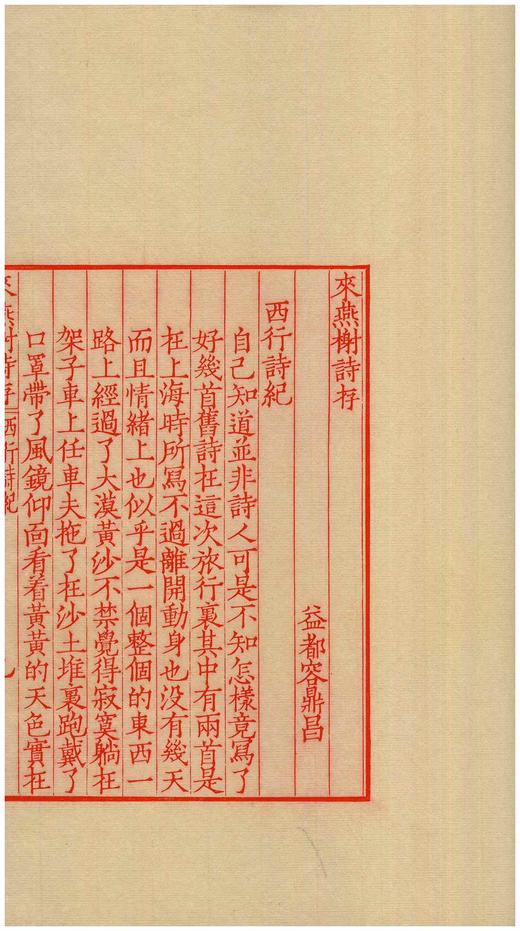 來燕榭詩存
益都容鼎昌
西行詩紀
自己知道並非詩人可是不知怎樣竟寫了
好幾首舊詩在這次旅行裏其中有兩首是
在上海時所寫不過離開動身也没有幾天
而且情緒上也似乎是一個整個的東西一
路上經過了大漠黃沙不禁覺得寂寞躺在
架子車上任車夫拖了在沙土堆裏跑戴了
口罩帶了風鏡仰面看着黃黃的天色實在
來燕榭詩存 西行詩紀